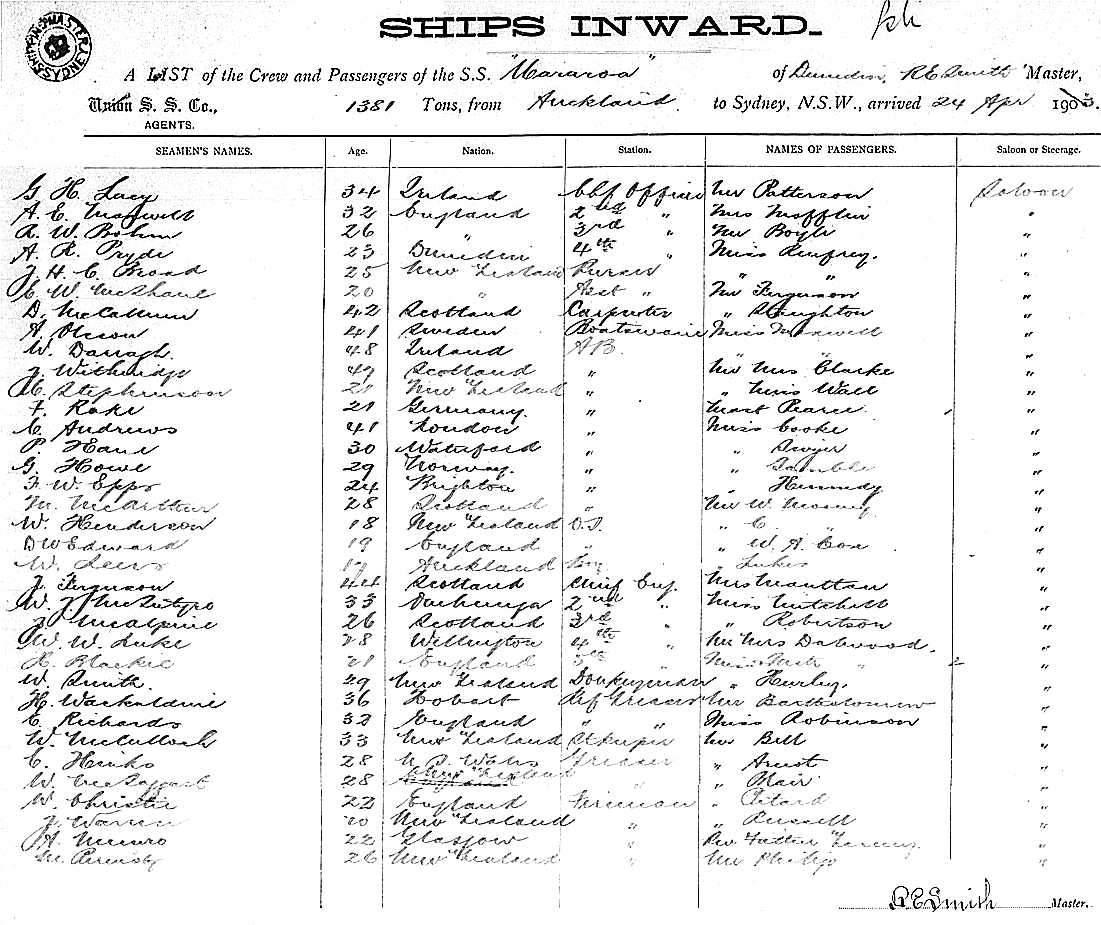 SHIPPING MASTER SYDNEY
SHIPS INWARD.
A LIST of the Crew and Passengers of the S.S. "Mararoa" of Dunedin, R E Smith Master,
Union S. S. Co., 1381 Tons, from Auckland to Sydney, N.S.W., arrived 24 Apr 1903.
AGENTS.
SEAMEN'S NAMES. Age. Nation. Station. NAMES OF PASSENGERS. Saloon or Steerage.
G H Lacy 34 Ireland Chf Officer Mr Patterson Saloon
A. E. Maxwell 32 England 2nd " Mrs Mofflin "
A. W. Bohm 26 " 3rd " Mr Boyle "
A. R. Pryde 23 Dunedin 4th " Miss Renfrey. "
J. H. C. Broad 25 New Zealand Purser " " "
E W. McShane 20 " Asst " Mr Ferguson "
D. McCallum 42 Scotland Carpenter " Stoughton "
A. Olsson 41 Sweden Boatswain Miss Maxwell "
W. Darragh. 48 Ireland AB. "
J. 49 Scotland " Mr Mrs Clarke "
C. Stephenson 21 New Zealand " " Miss Wall "
F. Rake 21 Germany. " Mast Pearce "
C. Andrews 41 London " Miss Cooke "
P. Hane 30 Waterford " " Dwyer "
G. Howe 29 Norway. " " Gamble "
F. W. Epps 24 Brighton " " Kennedy "
M. McArthur 28 Scotland " Mr W. "
W. Henderson 18 New Zealand O.S. " C. " "
D W Edward 19 England " " W. A. Cox "
W. Seers Auckland Boy " Jukes "
J. Ferguson 44 Scotland Chief Eng. Mrs "
W. J. McIntyre 33 Onehunga 2nd " Miss Mitchell "
J. McAlpine 26 Scotland 3rd " " Robertson "
W. W. Luke 28 Wellington 4th " Mr Mrs "
Blackie 21 England 5th " Miss " 2 "
W. Smith. 49 New Zealand Donkeyman " Hurley. "
H. 36 Hobart Ref Greaser Mr Bartholomew "
C. Richards 32 England " " Miss Robinson "
W. McCulloch 33 New Zealand Stkeeper Mr Bell "
C. Hinks 28 N S Wales Greaser " "
W. McTaggart 28 New Zealand " Blair "
W. Christie 22 England Fireman " "
J. Warren 20 New Zealand " " Russell "
A. Munro 22 Glasgow " Rev Father "
M. 26 New Zealand " Mr Philip "
R E Smith Master.